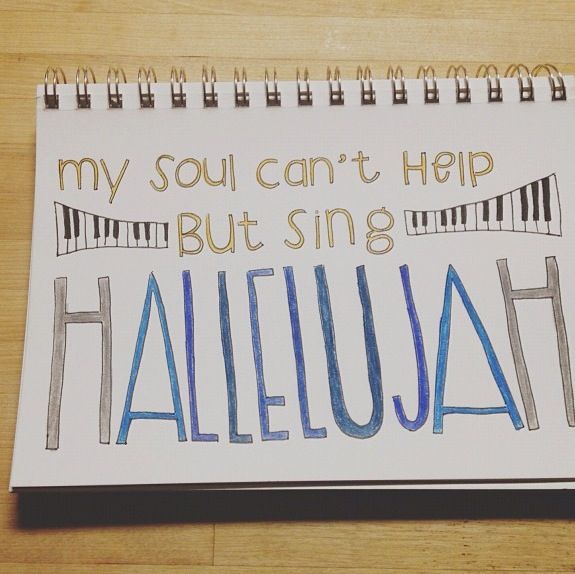 my Soul can't Help
But Sing
HALLELUJAH